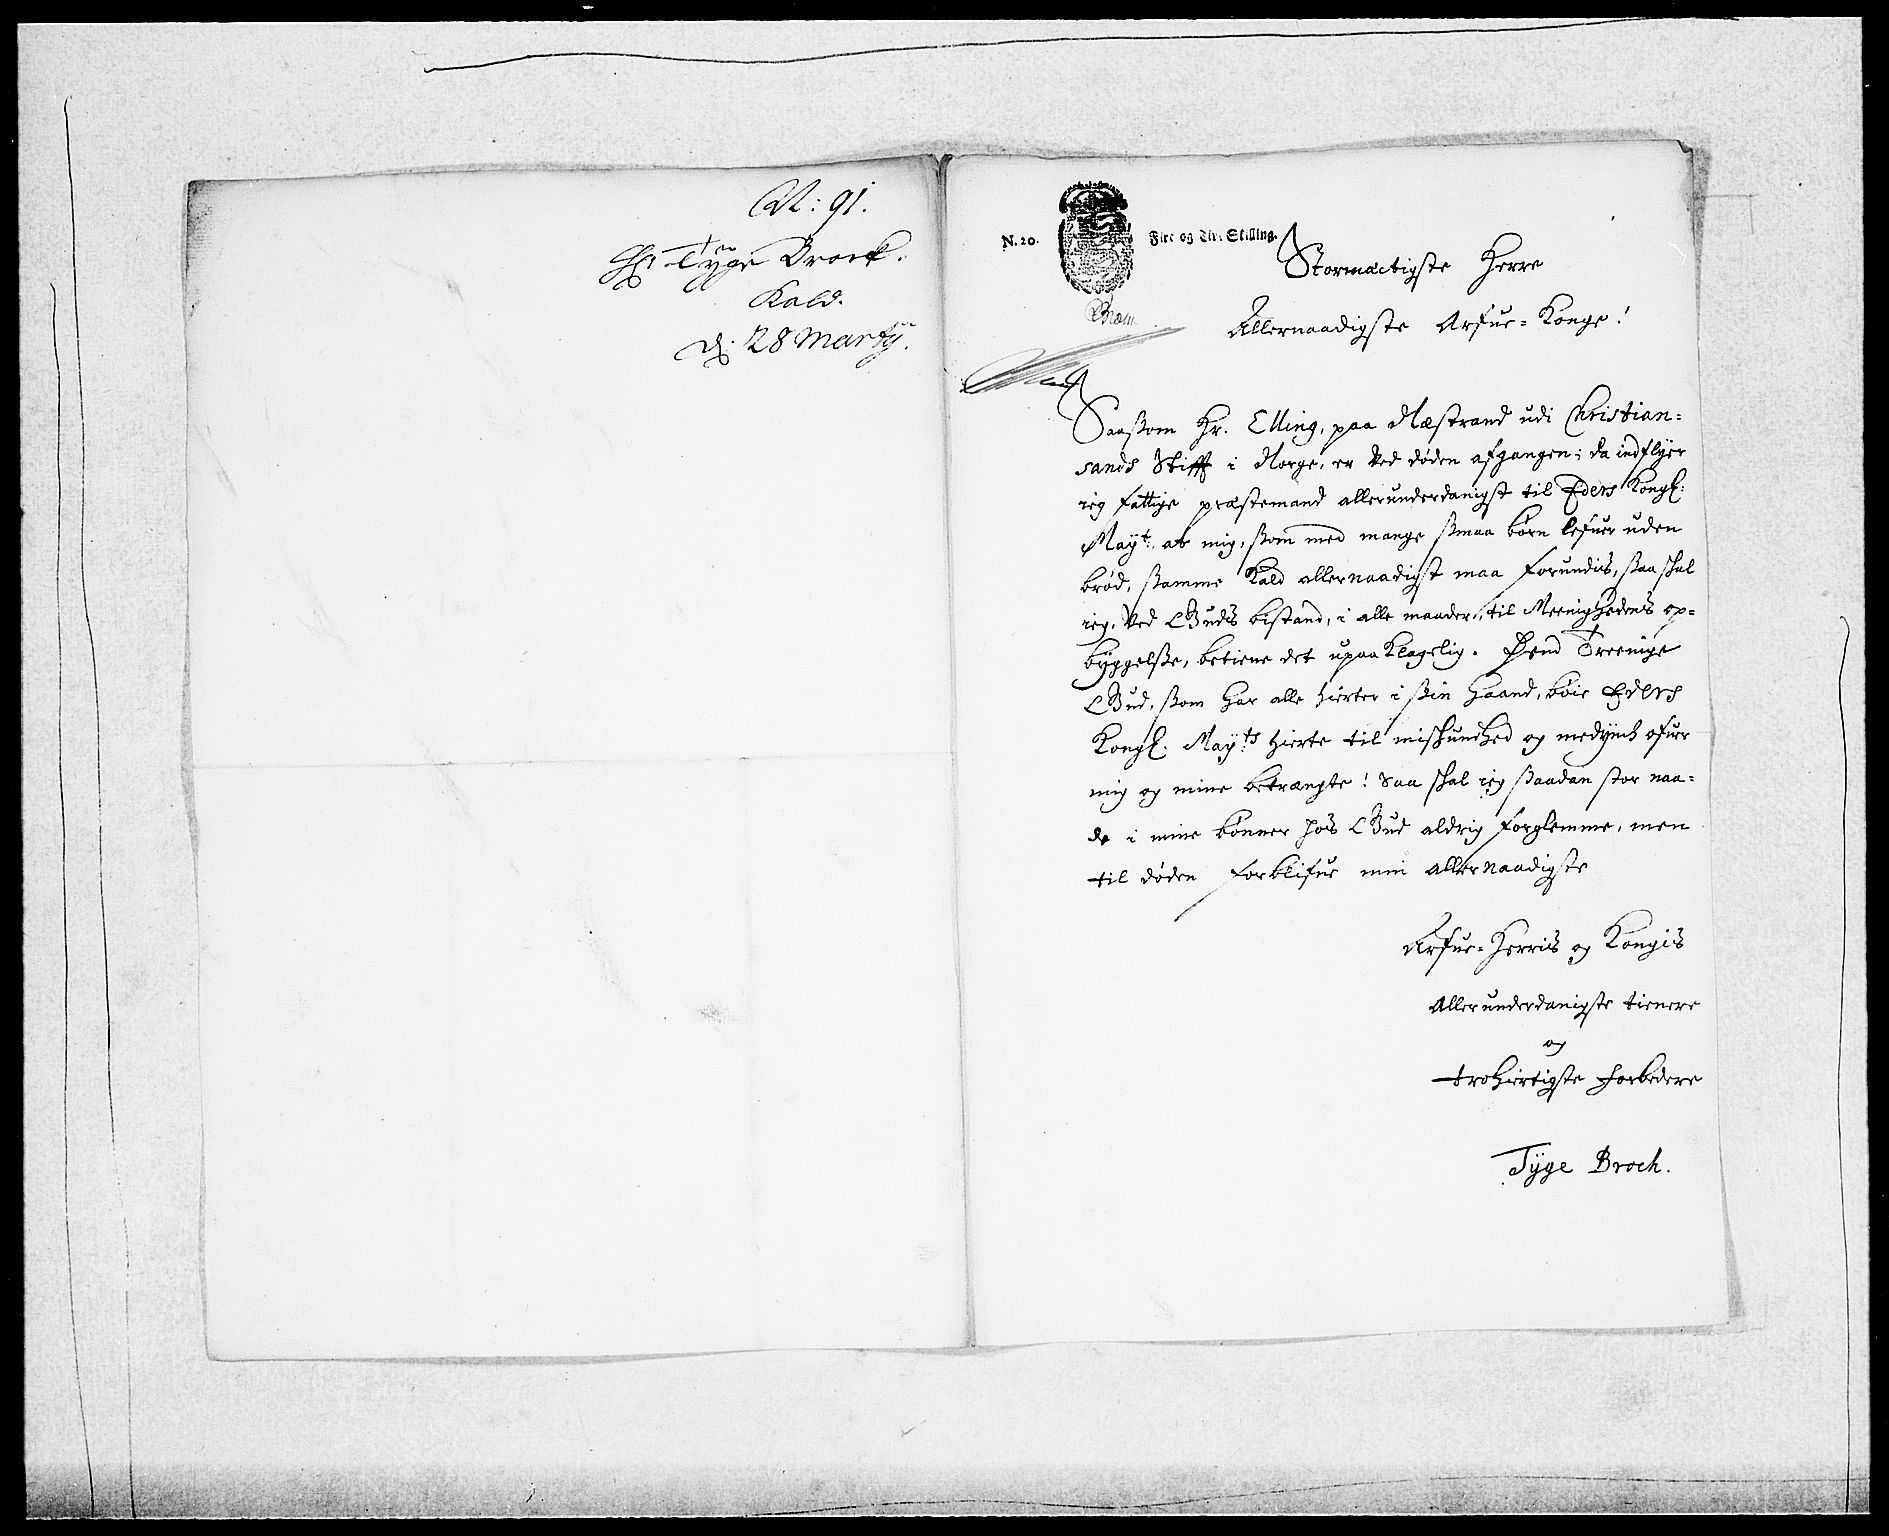 N: 91.
Hr Tyge Brock.
Kald.
d: 28 Martij.
N. 20. Fire og Tive Skilling.
Stormæctigste Herre
Allernaadigste Arfue-Konge!
Saassom Hr. Elling, paa Næstrand udi Christian=
sands Stifft i Norge, er ved døden afgangen; da indflyer
ieg fattige præstemand allerunderdanigst til Eders Kongl:
Mayt: at mig, ssom med mange ssmaa børn lefuer uden
brød, ssamme Kald allernaadigst maa forundis, ssaa skal
ieg, ved Gudis bistand, i alle maader, til Meenighedens op=
byggelsse, betiene det upaaklagelig. Dend Treenige
Gud, ssom har alle hierter i ssin haand, bøie Eders
Kongl. Mayts hierte til miskundhed og medynck ofuer
mig og mine betrængte! Saa skal ieg ssaadan stor naa=
de i mine bønner hos Gud aldrig forglemme, men
til døden forblifue min allernaadigste
Arfue-Herris og Kongis
Allerunderdanigste tienere
og
trohiertigste forbedere
Tyge Broch.